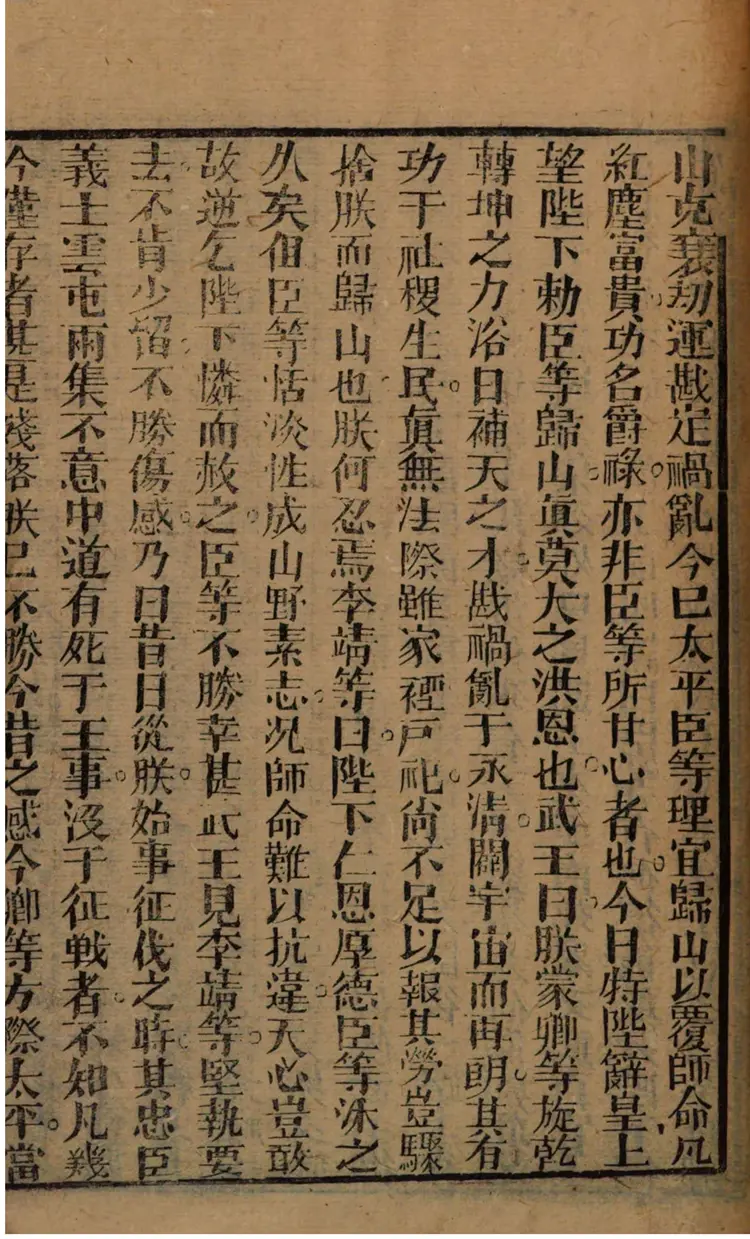 山克襄刼運戡定禍亂今已太平臣等理宜歸山以覆師命凡
紅塵富貴功名爵祿亦非臣等所甘心者也今日特陛辭皇上
望陛下勅臣等歸山眞莫大之洪恩也武王曰朕蒙卿等旋乾
轉坤之力浴日補天之才戡禍亂于永淸闢宇宙而再朗其有
功于社稷生民眞無法際雖家禋戸祀尙不足以報其勞豈驟
捨朕而歸山也朕何忍焉李靖等曰陛下仁恩厚德臣等沐之
久矣但臣等恬淡性成山野素志况師命難以抗違天心豈敢
故逆乞陛下憐而赦之臣等不勝幸甚武王見李靖等堅執要
去不肯少留不勝傷感乃曰昔日從朕始事征伐之時其忠臣
義士雲屯雨集不意中道有死于王事沒于征戰者不知凡幾
今僅存者甚是殘落朕已不勝今昔之感今卿等方際太平當